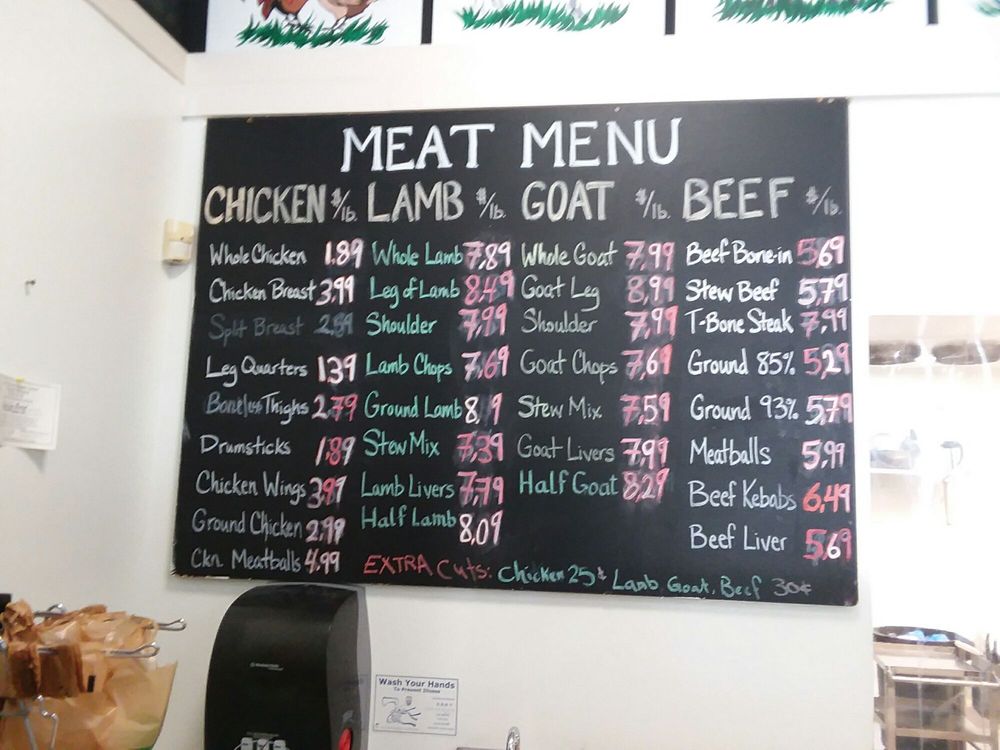 MEAT MENU
CHICKEN $/lb.
Whole Chicken 1.89
Chicken Breast 3.99
Split Breast
Leg Quarters 1.39
Boneless Thighs 2.79
Drumsticks 1.89
Chicken Wings 3.97
Ground Chicken 2.99
Ckn. Meatballs 4.99
LAMB $/lb.
Whole Lamb 7.89
Leg of Lamb 8.49
Shoulder 7.99
Lamb Chops 7.69
Ground Lamb
Stew Mix 7.39
Lamb Livers 7.79
Half Lamb 8.09
GOAT $/lb.
Whole Goat 7.99
Goat Leg 8.99
Shoulder 7.99
Goat Chops 7.69
Stew Mix 7.59
Goat Livers 7.99
Half Goat 8.29
BEEF $/lb.
Beef Bone-in 5.69
Stew Beef 5.79
T-Bone Steak 7.99
Ground 85% 5.29
Ground 93% 5.79
Meatballs 5.99
Beef Kebabs 6.49
Beef Liver 5.69
EXTRA Cuts: Chicken 25¢ Lamb, Goat, Beef 30¢
Wash Your Hands
To Prevent Illness